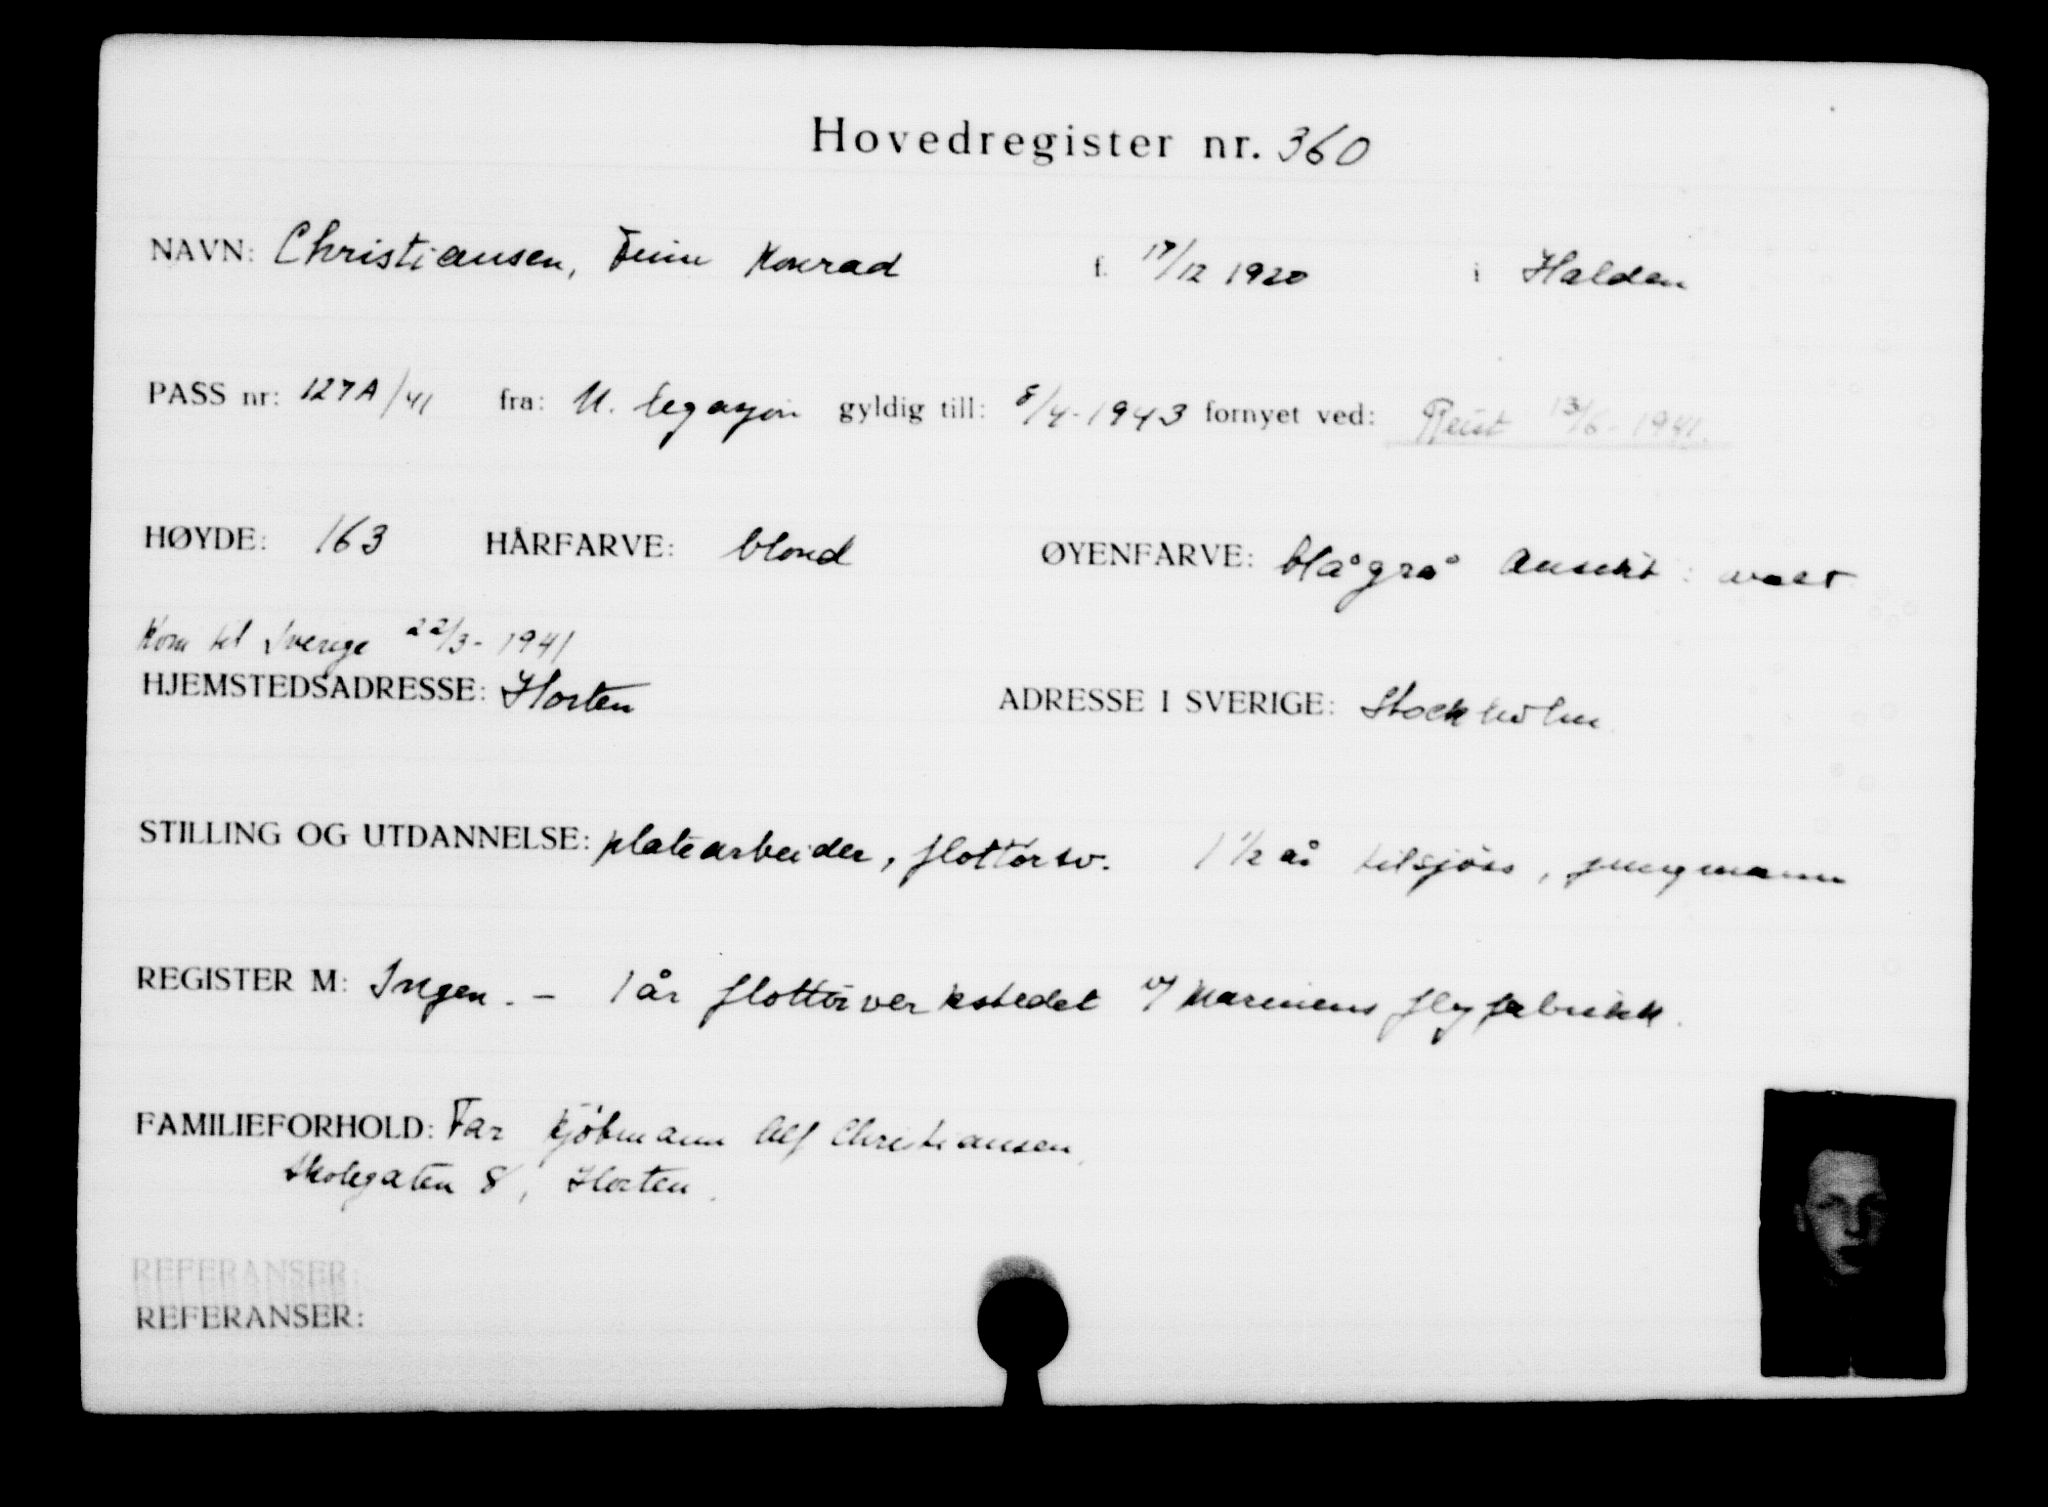 Hovedregister nr. 360
NAVN: Christiansen, Finn Konrad f. 17/12 1920 i Halden
PASS nr: 127A/41 fra: N. legasjon gyldig till: 8/4-1943 fornyet ved: 13/6-1941.
HØYDE: 163 HÅRFARVE: blond ØYENFARVE: blågrå Ansikt: ovalt
Kom til Sverige 22/3-1941
HJEMSTEDSADRESSE: Horten ADRESSE I SVERIGE: Stockholm
STILLING OG UTDANNELSE: platearbeider, flottörsv. 1 1/2 år tilsjöss, jungmann
REGISTER M: Ingen. - 1 år flottörverkstedet v/ Marinens flyfabrikk.
FAMILIEFORHOLD: Far Kjöbmann Alf Christiansen,
Skolegaten 8, Horten.
REFERANSER:
REFERANSER: